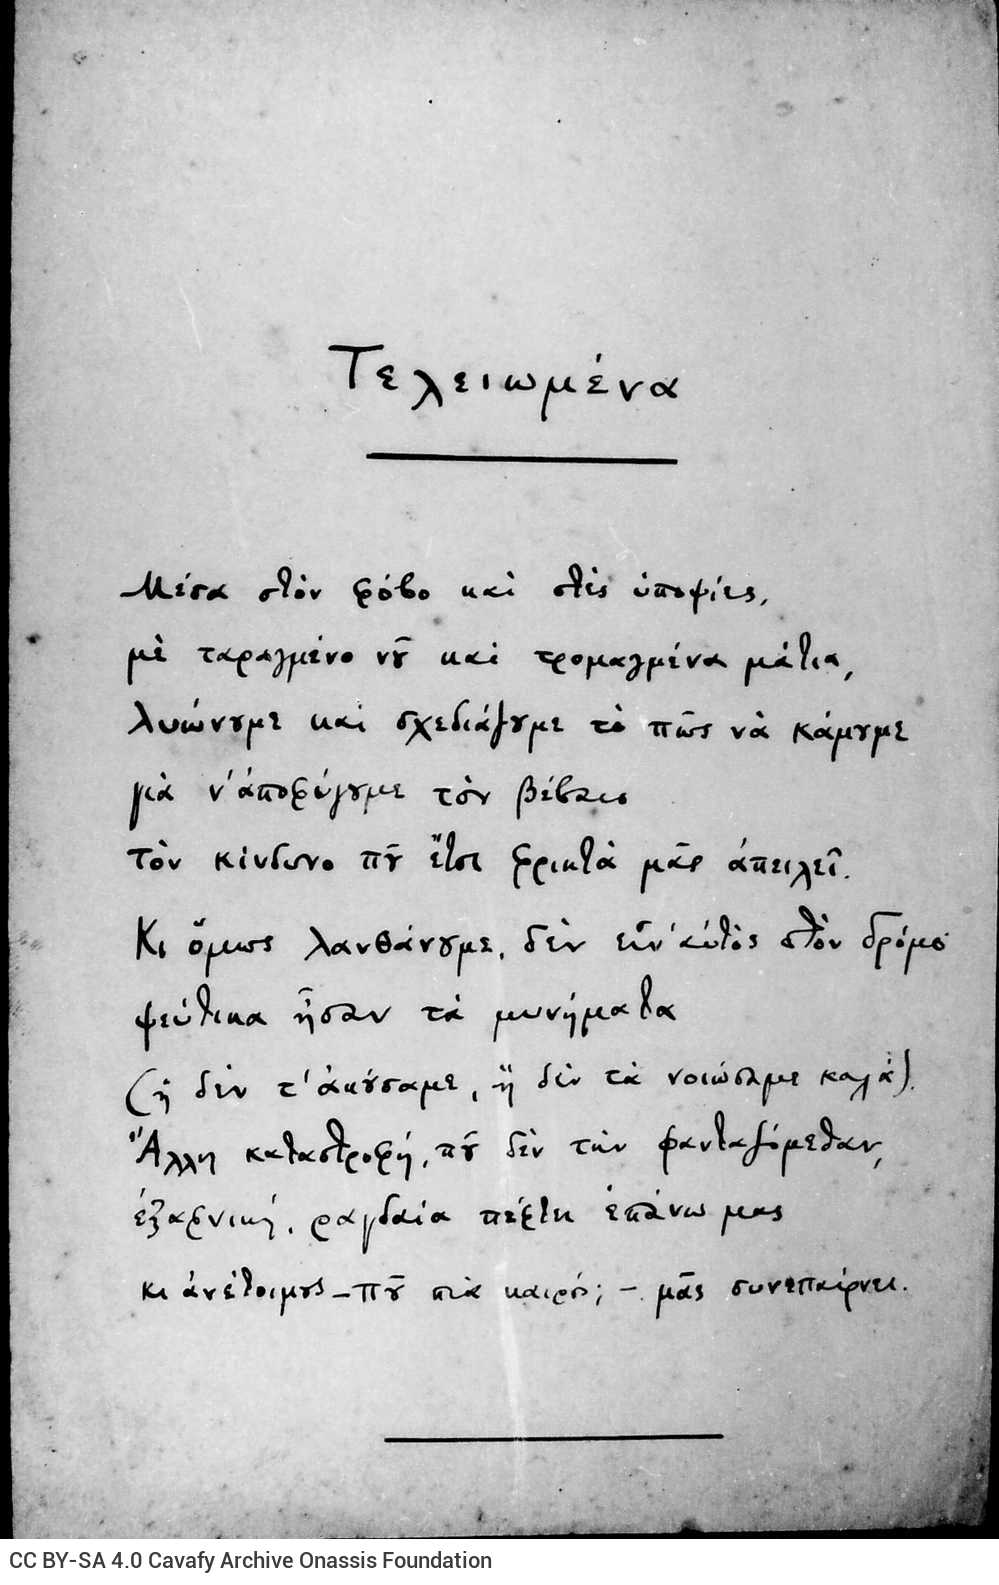 Τελειωμένα
Μέσα στὸν φόβο καὶ στὲς ὑποψίες,
μὲ ταραγμένο νοῦ καὶ τρομαγμένα μάτια,
λυώνουμε καὶ σχεδιάζουμε τὸ πῶς νὰ κάμουμε
γιὰ ν' ἀποφύγουμε τὸν βέβαιο
τὸν κίνδυνο ποῦ ἔτσι φρικτὰ μᾶς ἀπειλεῖ.
Κι ὅμως λανθάνουμε, δὲν εἶν' αὐτὸς στὸν δρόμο·
ψεύτικα ἦσαν τὰ μυνήματα
(ἢ δὲν τ' ἀκούσαμε, ἢ δὲν τὰ νοιώσαμε καλά).
Ἄλλη καταστροφή, ποῦ δὲν τὴν φανταζόμεθαν,
ἐξαφνική, ραγδαία πέφτει ἐπάνω μας
κι ἀνέτοιμους – ποῦ πιὰ καιρός; – μᾶς συνεπαίρνει.
CC BY-SA 4.0 Cavafy Archive Onassis Foundation